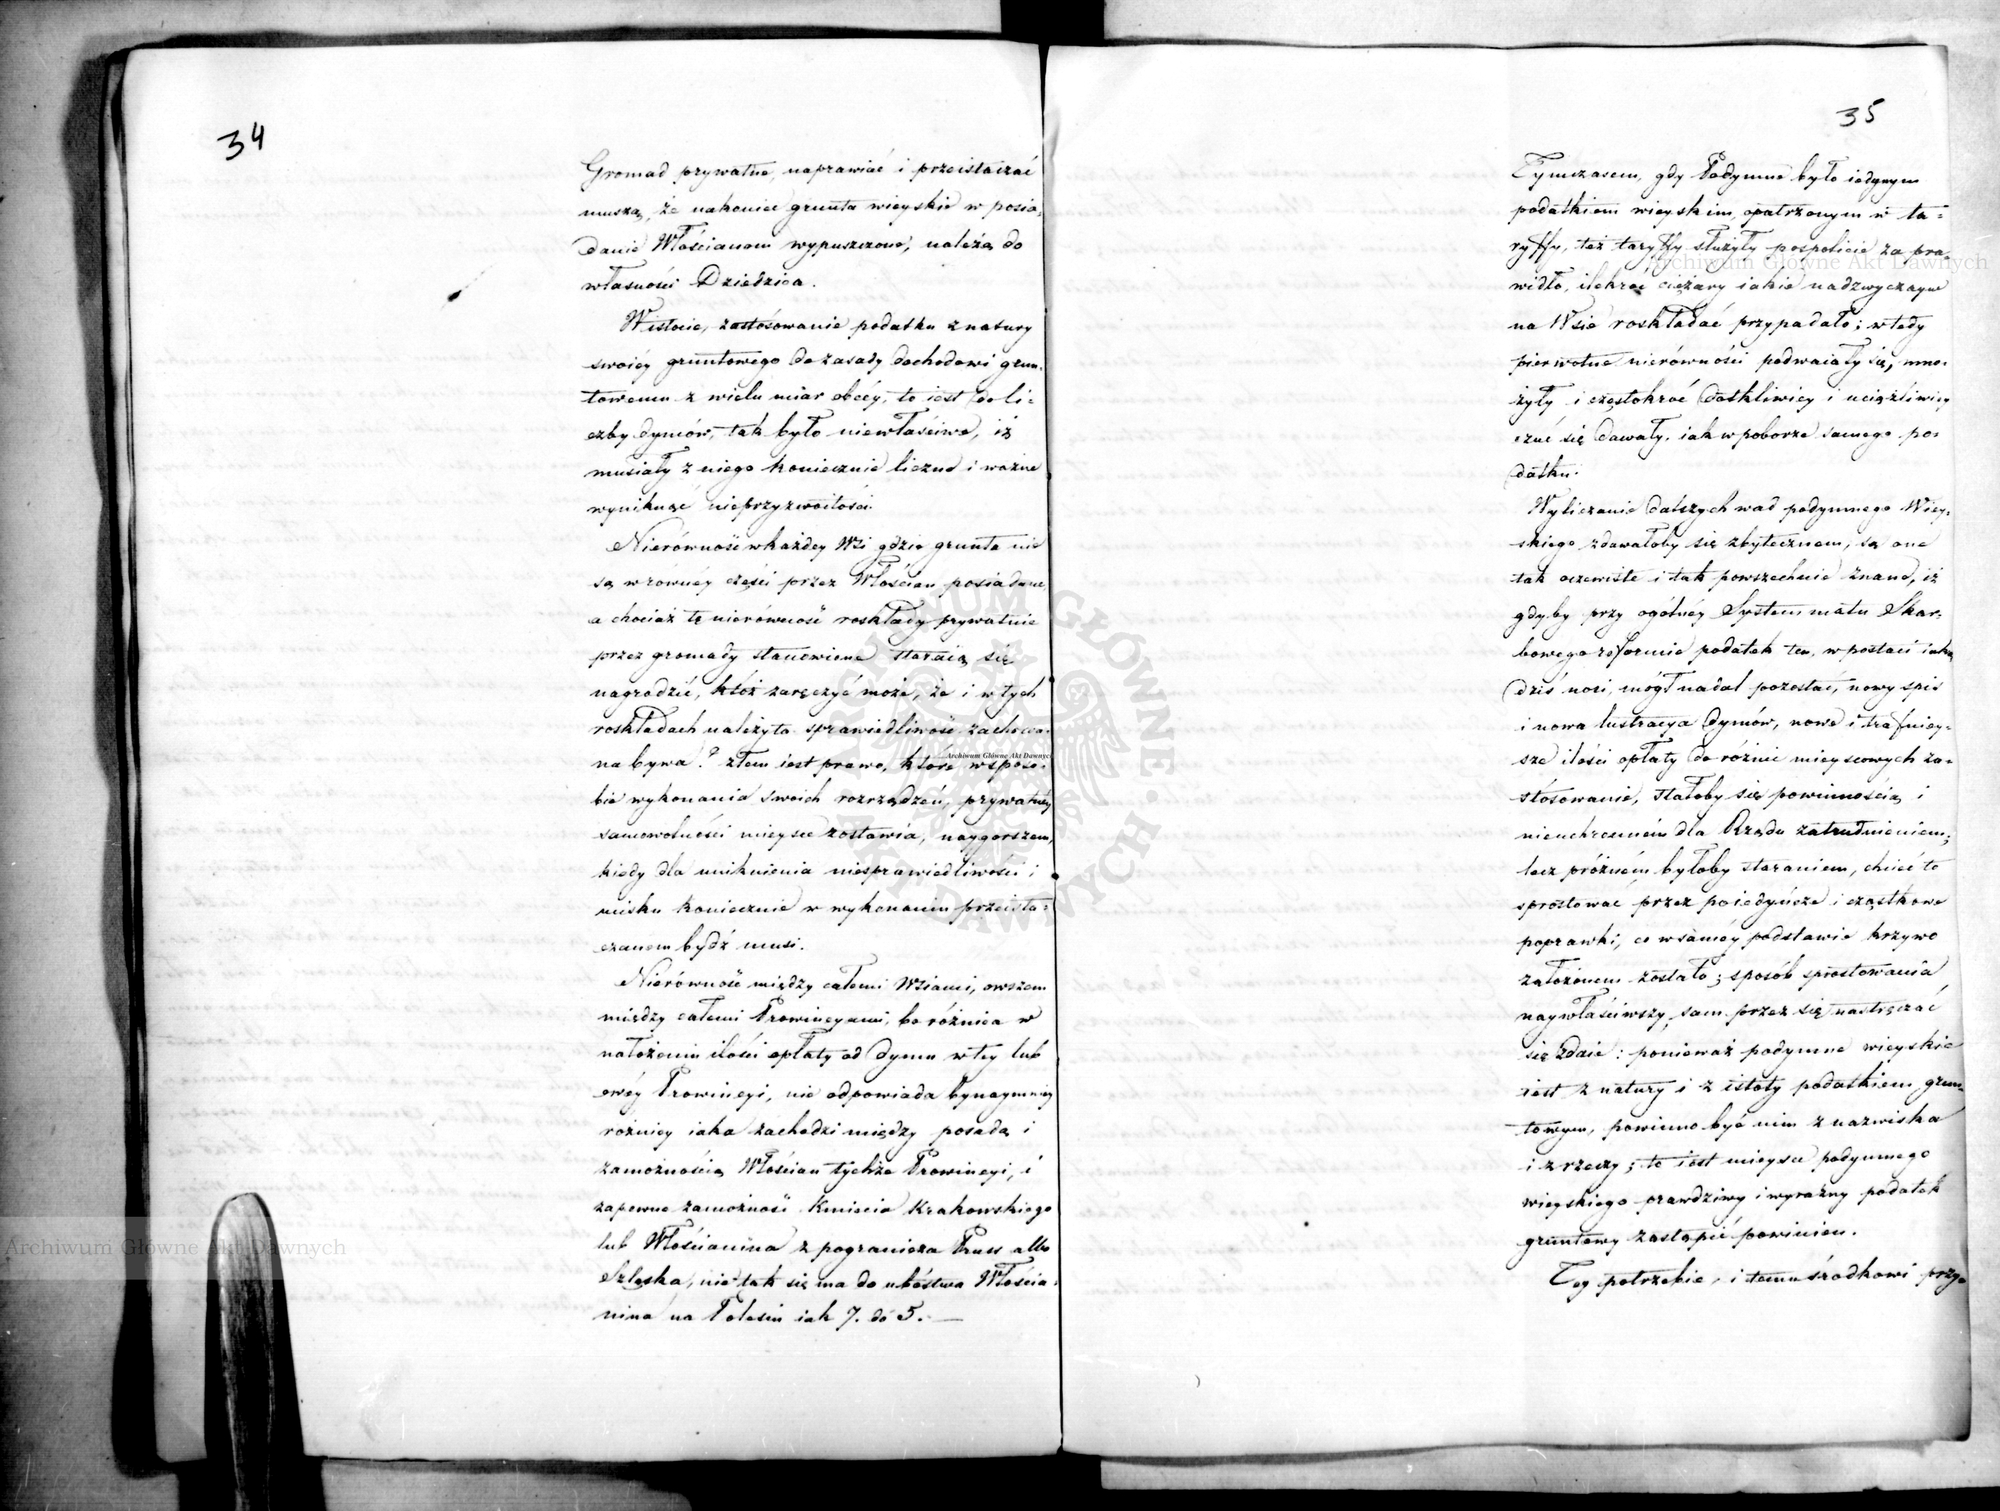 34
Gromad prywatne, naprawiać i przeistaczać
muszą, że nakoniec grunta wieyskie w posia-
danie Włościanom wypuszczone, należą do
własności Dziedzica.
Wistocie, zastósowanie podatku z natury
swoiéy gruntowego do zasady dochodowi grun-
towemu z wielu miar obcéy, to iest do li-
czby dymów, tak było niewłaściwe, iż
musiały z niego koniecznie liczne i ważne
wyniknąć nieprzyzwoitości.
Nierówność w każdey Wsi gdzie grunta nie
są w rownéy części przez Włościan posiadane
a chociaż tę nierówność roskłady prywatnie
przez gromady stanowione staraią się
nagrodzić, któż zaręczyć może, że i w tych
roskładach należyta sprawiedliwość zachowa-
na bywa? złem iest prawo, które w sposo-
bie wykonania swoich rozrządzeń, prywatnéy
samowolności mieysce zostawia, naygorszem,
kiedy dla uniknienia niesprawiedliwości i
ucisku koniecznie w wykonaniu przeista-
czanem bydź musi.
Nierówność między całemi Wsiami, owszem
między całemi Prowincyami, bo różnica w
nałożeniu ilości opłaty od dymu w tey lub
owéy Prowincyi, nie odpowiada bynaymniey
rożnicy iaka zachodzi między posadą i
zamożnością Włościan tychże Prowincyi, i
zapewne zamożność Kmiecia Krakowskiego
lub Włościanina z pogranicza Pruss albo
Szląska, nie tak się ma do ubóstwa Włościa-
nina na Polesiu iak 7. do 5. —
35
Tymczasem, gdy Podymne było iedynym
podatkiem wieyskim, opatrzonym w ta-
ryffy, też taryffy służyły pospolicie za pra-
widło, ilekroć ciężary iakie nadzwyczayne
na Wsie roskładać przypadało; wtedy
pierwotne nierówności podwaiały się, mno-
żyły i częstokroć dotkliwiey i uciążliwiey
czuć się dawały, iak w poborze samego po-
datku.
Wyliczanie dalszych wad podymnego Wiey-
skiego zdawałoby się zbytecznem, są one
tak oczewiste i tak powszechnie znane, iż
gdyby przy ogólnéy Systemmatu Skar-
bowego reformie podatek ten, w postaci iaką
dziś nosi, mógł nadal pozostać, nowy spis
i nowa lustracya dymów, nowe i trafniey-
sze ilości opłaty do różnic mieyscowych za-
stósowanie, stałoby się powinnością i
nieuchronném dla Rządu zatrudnieniem;
lecz próżném byłoby staraniem, chcieć to
sprostować przez poiedyńcze i cząstkowe
poprawki, co w saméy podstawie krzywo
założonem zostało; sposób sprostowania
naywłaściwszy, sam przez się nastręczać
się zdaie: ponieważ podymne wieyskie
iest z natury i z istoty podatkiem grun-
towym, powinno być nim z nazwiska
i z rzeczy; to iest mieysce podymnego
wieyskiego prawdziwy i wyraźny podatek
gruntowy zastąpić powinien.
Tey potrzebie, i temu środkowi przy-
Archiwum Główne Akt Dawnych
Archiwum Główne Akt Dawnych
Archiwum Główne Akt Dawnych